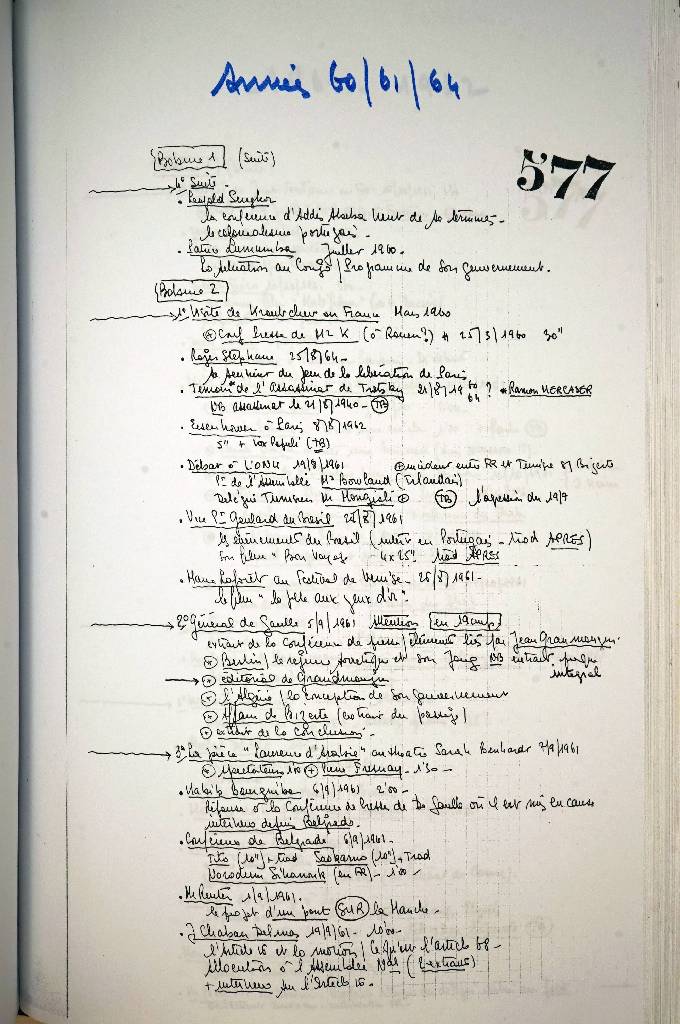 Années 60/61/64
577
Bobine 1 (Suite)
4° Suite.
. Léopold Senghor
la conférence d'Addis Abeba vient de se terminer -
le colonialisme portugais.
. Patrice Lumumba Juillet 1960.
La situation au Congo / Programme de son gouvernement.
Bobine 2
1° Visite de Kroutchev en France Mars 1960
Conf Presse de Mr K (à Rouen?) 25/3/1960 30"
. Roger Stéphane 25/8/64 -
le de la libération de Paris
. de l'Assassinat de Trotsky 21/8/19 60 64 ? * Ramon MERCADER
NB assassinat le 21/8/1940 - TB
. Eisenhower à Paris 8/8/1962
5" + Vox Populi (TB)
. Débat à l'ONU 19/8/1961 + incident entre FR et Tunisie s/ Bizerte
Pt de l'Assemblée Mr Bowland (Irlandais)
Délégué Tunisien Mr Mongi Slim + TB l'agression du 19/7
. Vice Pt Goulard du Brésil 28/8/1961
les évènements du Brésil (interv en Portugais - trad APRES)
Son film "Bon Voyage 4 x 25" trad APRES
. Marie Laforêt au Festival de Venise - 28/8/1961 -
le film "la fille aux yeux d'or".
2° Général de Gaulle 5/9/1961 Attention en 19 cmps
extrait de la Conférence de presse / éléments liés par Jean Grandmougin.
+ Berlin / le régime soviétique et son Joug NB extrait presque
intégral
+ éditorial de Grandmougin
+ l'Algérie / la conception de son gouvernement
+ Affaire de Bizerte (extrait du passage)
+ extrait de la conclusion. -
3° La pièce "Laurence d'Arabie" au théatre Sarah Benhardt 7/9/1961
+ Spectateurs 1'00 + Pierre Fresnay - 1'30 -
. Habib Bourguiba 6/9/1961 2'00 -
Réponse à la Conférence de Presse de De Gaulle où il est mis en cause
interview depuis Belgrade.
. Conférence de Belgrade 6/9/1961 -
Tito (10") + trad Soekarno (10") + Trad
Norodom Sihanouk (en FR) - 1'00 -
. Mr Reuter 1/9/1961.
le projet d'un pont SUR la Manche -
. J Chaban Delmas 19/9/61 - 10'00 -
l'Article 16 et la motion / Ce qu'est l'article 68 -
Allocution à l'Assemblée Nale (2 extraits)
+ interview sur l'Article 16. -